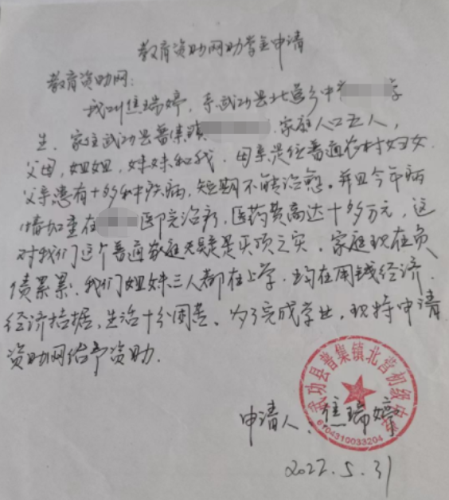 教育资助网助学金申请
教育资助网:
我叫焦瑞婷,系武功县北营乡中学
生,家住武功县普集镇 家庭人口五人,
父母,姐姐,妹妹和我。母亲是位普通农村妇女
父亲患有十多种疾病,短期不能治愈。并且今年病
情加重在 医院治疗,医药费高达十多万元,这
对我们这个普通家庭无疑是灭顶之灾。家庭现在负
债累累,我们姐妹三人都在上学,均在用钱经济
经济拮据,生活十分困苦。为了完成学业,现特申请
资助网给予资助。
武功县普集镇北营初级中学
6104310033204
申请人:焦瑞婷
2022.5.31